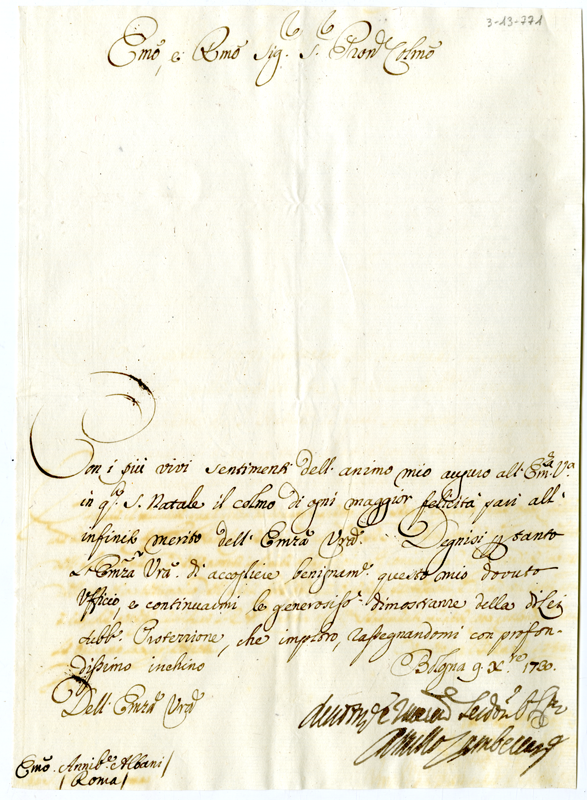 3-13-771
Emo, e Rmo Sig.r S. Pron Colmo
Con i più vivi sentimenti dell'animo mio auguro all'Em.a V.a
in q.to S. Natale il colmo di ogni maggior felicità pari all'
infinito merito dell'Emza Vra. Degnisi p tanto
L'Emza Vra. di accogliere benignam.e questo mio dovuto
Ufficio, e continuarmi le generosiss.e dimostranze della di Lei
Protezzione, che imploro, rassegnandomi con profon-
dissimo inchino Bologna 9 Xre 1730.
Dell'Emza Vra
Zambeccari
Emo. Annib.e Albani /
/ Roma /